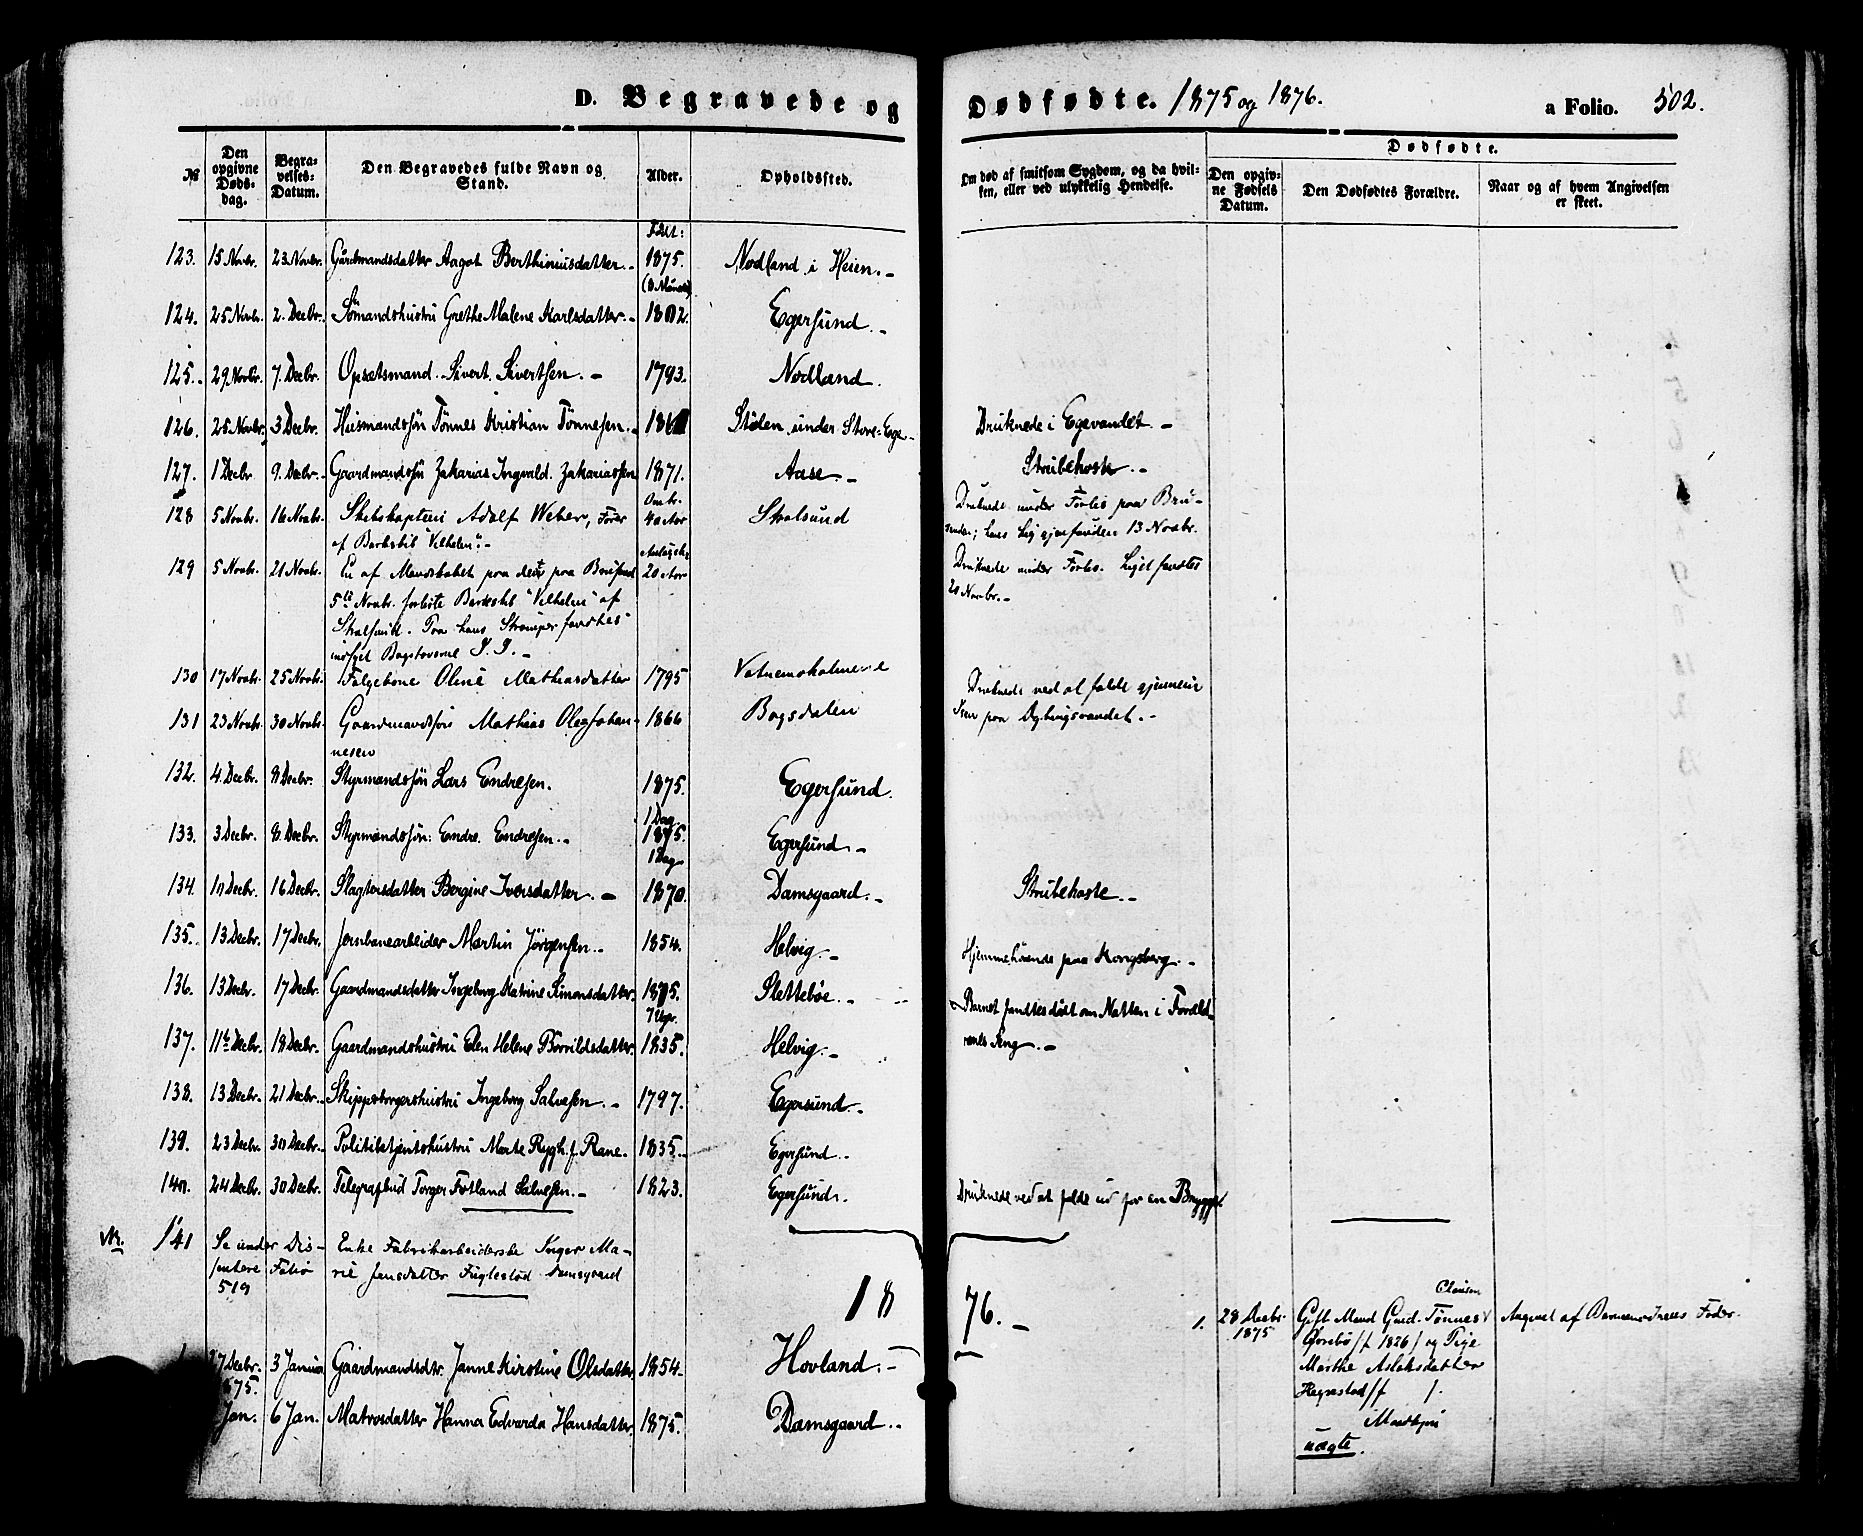 D. Begravede og Dødfødte. 1875 og 1876. a Folio. 502.
№ Den opgivne Døds-dag. Begra-velses-Datum. Den Begravedes fulde Navn og Stand. Alder. Opholdssted. Om død af smitsom Sygdom, og da hvil-ken, eller ved ulykkelig Hendelse. Dødfødte.
Den opgiv-ne Fødsels Datum. Den Dødfødtes Forældre. Naar og af hvem Angivelsen er skeet.
123. 15 Novbr. 23 Novbr. Gårdmandsdatter Aagot Berthiniusdatter.- 1875. Nodland i Heien.-
124. 25 Novbr. 2. Decbr. Sömandshustrü Grethe Malene Karlsdatter.- 1802. Egersund.-
125. 29 Novbr. 7. Decbr. Opsatsmand Sivert Sivertsen.- 1793. Nodland.
126. 25 Novbr. 3 Decbr. Husmandssön Tönnes Kristian Tönnesen.- Stölen under Store-Ege- Druknede i Egevandet.-
127. 1 Decbr. 9. Decbr. Gaardmandssön Zakarias Ingvald Zakariassen 1871. Aase.- Strubehoste.-
128 5 Novbr. 16 Novbr. Skibskaptein Adolf Weber, Fører Omtr. 40 Aar Stralsund Druknede under Forlis paa Bru-
af Barkskib "Vilhelm".- hans Lig gjenfunden 13 Novbr.
129 5 Novbr. 21 Novbr. En af Mandskabet paa det paa 20 Aar Druknede under Forlis. Liget fandtes
5te Novbr. forliste Barkskib "Vilhelm" af 20 Novbr.-
Stralsund. Paa hans Strømper fandtes
indsyet Bogstaverne I. I.-
130 17 Novbr. 25 Novbr. Følgekone Oline Mathiasdatter 1795 Vatnemoholmene
131 23 Novbr. 30 Novbr. Gaardmandssön Mathias Olas Johan- 1866 Bogsdalen Druknede ved at falde gjennem
nesen Isen paa
132. 4. Decbr. 8 Decbr. Styrmandssön Lars Endresen. 1875. 1 Dag Egersund.
133. 3. Decbr. 8. Decbr. Styrmandssön: Endre Endresen.- 1875. 1 Dag Egersund.-
134. 10 Decbr. 16 Decbr. Slagtersdatter Bergine Iversdatter.- 1870. Damsgaard.- Strubehoste.-
135. 13 Decbr. 17 Decbr. Jernbanearbeider Martin Jörgensen.- 1854. Helvig.- Hjemmehörende paa Kongsberg.-
136. 13 Decbr. 17 Decbr. Gaardmandsdatter Ingeborg Katrine Simonsdatter. 1875. 7 Uger. Slettebøe.- Barnet fandtes dödt om Natten i Foræld-
137. 11te Decbr. 18 Decbr. Gaardmandshustrü Elen Helene Börrildsdatter. 1835. Helvig.- renes Seng.-
138. 13 Decbr. 21 Decbr. Skipperborgershustrü Ingeborg Salvesen.- 1797. Egersund.-
139. 23 Decbr. 30 Decbr. Politibetjentshustrü Marte Rygh. f. Rane. 1835. Egersund.-
140. 24 Decbr. 30 Decbr. Telegrafbud Torger Fotland Salvesen.- 1823. Egersund. Druknede ved at falde ud for en Brygge.
141 Se under Dis- Enke Fabrikarbeiderske Inger Ma-
sentere Folio rie Jensdatter Fuglestad Damsgaard
519
1876.-
1. 28 Decbr. 1875 Gift Mand Gard. Tönnes Clausen Ørsebø /f 1826/ og Pige Marthe Aslaksdatter Hegrestad /f /. uægte. Angivet af Fader.
27 Decbr. 1875. 3 Januar Gaardmandsdtr. Janne Kirstine Olsdatter 1854. Hovland.-
Jan. 6 Jan. Matrosdatter Hanna Edvarda Hansdatter. 1875. Damsgaard.-